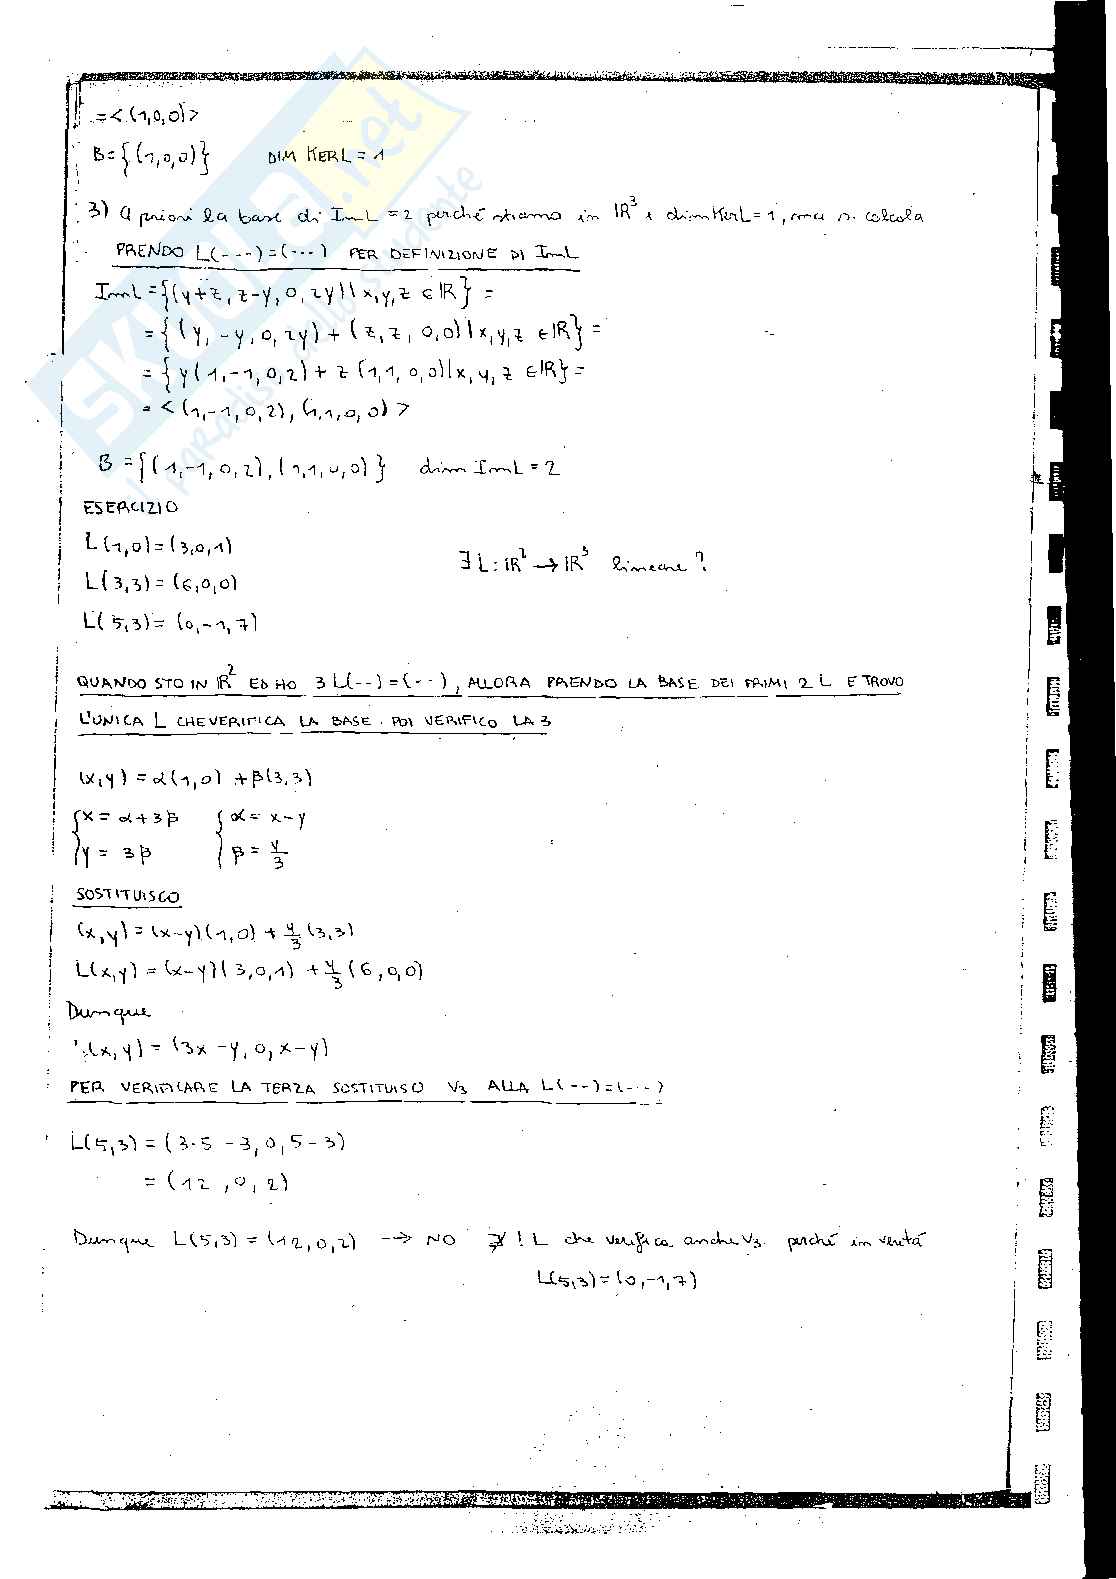 =<(1,0,0)>
B={(1,0,0)} DIM KERL=1
3) a priori la base di ImL=2 perché stiamo in ℝ³ e dimKerL=1, ma si calcola
PRENDO L(---)=(---) PER DEFINIZIONE DI ImL
ImL={(y+z, z-y, 0, 2y)\x,y,z ∈ℝ} =
={(y, -y, 0, 2y) + (z, z, 0,0)|x,y,z ∈ℝ} =
={y(1,-1,0,2) + z(1,1,0,0)|x,y,z ∈ℝ}=
=<(1,-1,0,2), (1,1,0,0)>
B={(1,-1,0,2), (1,1,0,0)} dim ImL=2
ESERCIZIO
L(1,0)=(3,0,1)
∃ L: ℝ² → ℝ³ lineare?
L(3,3)=(6,0,0)
L(5,3)=(0,-1,7)
QUANDO STO IN ℝ² ED HO 3 L(--)=(--), ALLORA PRENDO LA BASE DEI PRIMI 2 L E TROVO
L'UNICA L CHE VERIFICA LA BASE. POI VERIFICO LA 3
(x,y)=α(1,0)+β(3,3)
{x=α+3β {α=x-y
{y=3β {β=y/3
SOSTITUISCO
(x,y)=(x-y)(1,0)+y/3(3,3)
L(x,y)=(x-y)(3,0,1)+y/3(6,0,0)
Dunque
L(x,y)=(3x-y,0,x-y)
PER VERIFICARE LA TERZA SOSTITUISO V3 ALLA L(--)=(---)
L(5,3)=(3·5-3,0,5-3)
=(12,0,2)
Dunque L(5,3)=(12,0,2) → NO ∄! L che verifica anche V3 perché in verità
L(5,3)=(0,-1,7)
SKUOLA.net
il paradiso dello studente